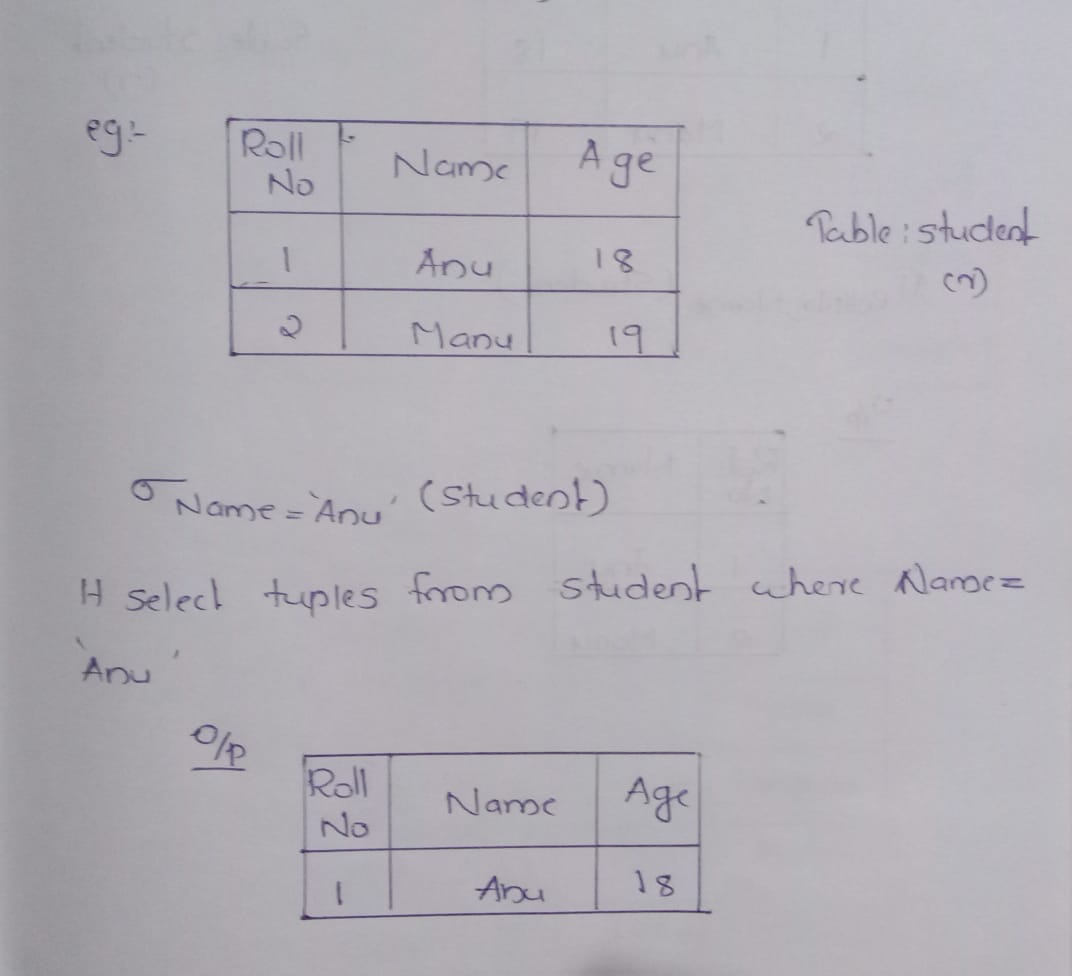 eg:-
Roll No Name Age
1 Anu 18
2 Manu 19
Table: student
(r)
σ Name = 'Anu' (Student)
It select tuples from student where Name =
'Anu'
O/p
Roll No Name Age
1 Anu 18